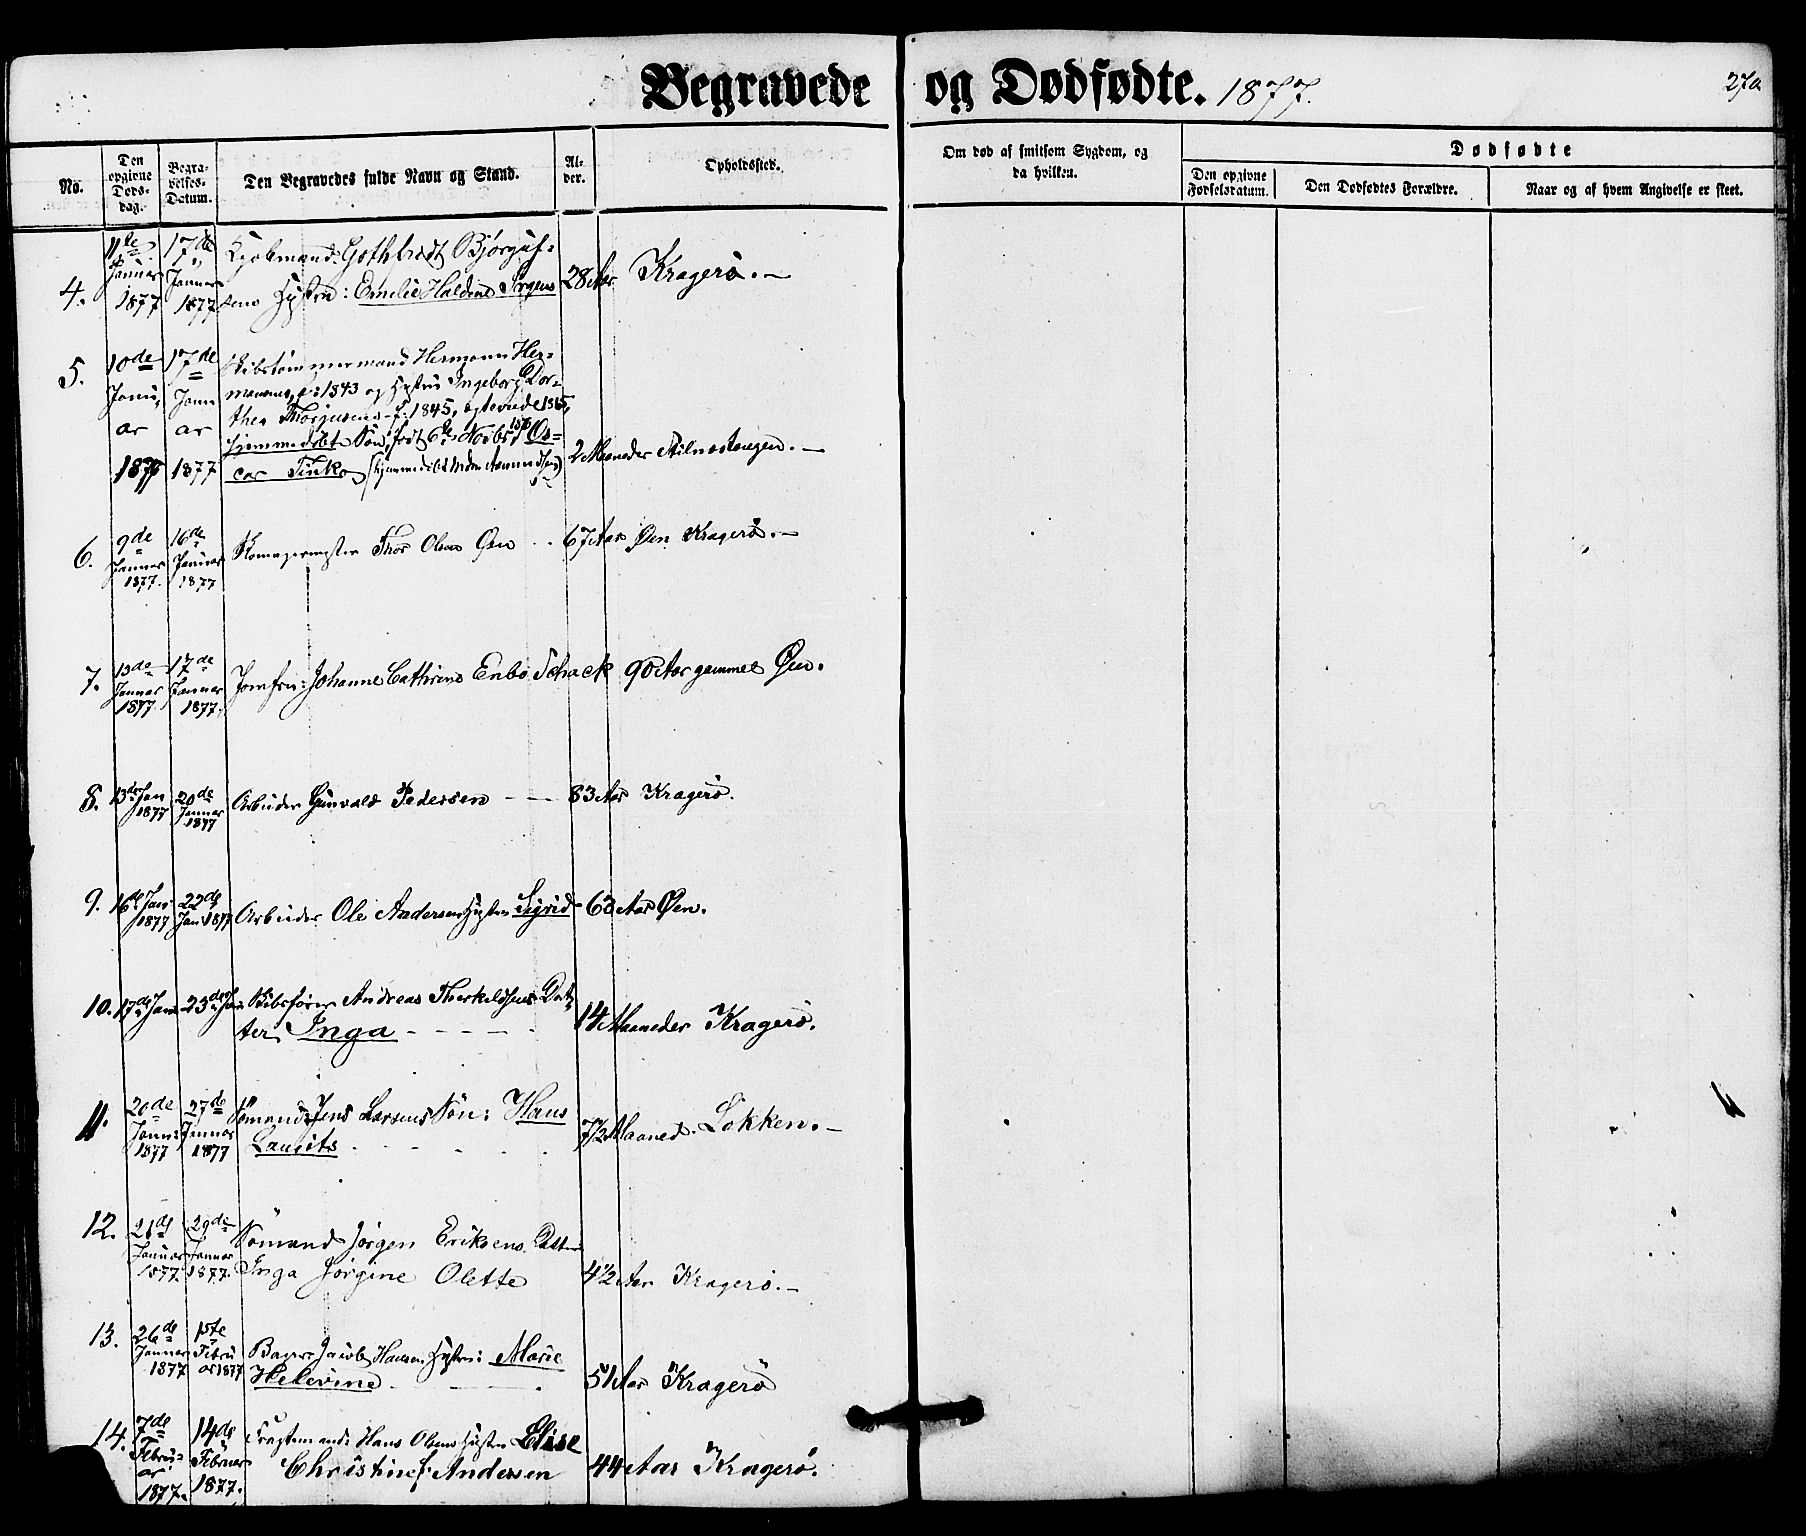 Begravede og Dødfødte. 1877.
270.
No.
Den opgivne Døds-dag.
Begra-velses-Datum.
Den Begravedes fulde Navn og Stand.
Al-der.
Opholdssted.
Om død af smitsom Sygdom, og da hvilken.
Dødfødte
Den opgivne Fødselsdatum.
Den Dødfødtes Forældre.
Naar og af hvem Angivelse er skeet.
4.
11te Januar 1877
17de Januar 1877
Kjøbmand: Gothfredt Bjørguf-
sens Hustru: Emelie Haldine
28 Aar
Kragerö.
5.
10de Janu-ar 1877
17de Janu ar 1877
Skibstømmermand Hermann Her-
mansens, f: 1843 og Hustru Ingeborg Dor-
thea Thorjusens f: 1845, ægteviede 1865,
hjemmedøbte Søn, født 6te Novbr 1876 Os-
car
2 Maaneder
Stilnestangen.
6.
9de Januar 1877.
16de Januar 1877
Skomagermester Thor Olsen Øen
67 Aar
Øen Kragerö.
7.
13de Januar 1877
17de Januar 1877.
Jomfru: Johanne Cathrine Enbo Schack
90 Aar gammel
Øen.
8.
13de Jan 1877
20de Januar 1877
Arbeider Gunvald Pedersen
83 Aar
Kragerö.
9.
16de Jan 1877
22de Jan 1877
Arbeider Ole Andersens Hustru Sigrid
63 Aar
Øen.
10.
17de Jan
23de Jan
Skibsfører Andreas Therkeldsens Dat-
ter, Inga
14 Maaneder
Kragerö.
11.
20de Janu: 1877
27de Januar 1877
Sömand: Jens Larsens Søn: Hans
Laurits
7½ Maaned.
Lokken.
12.
21de Januar 1877
29de Januar 1877.
Sömand Jörgen Eriksens Datter
Inga Jörgine Olette
4½ Aar
Kragerö.
13.
26de Januar 1877
1ste Febru ar 1877
Bager Jacob Hansens Hustru: Marie
Helevine
51 Aar
Kragerö
14.
7de Febru-ar 1877.
14de Februar 1877.
Fragtemand: Hans Olsens Hustru Elise
Christine f: Andersen
44 Aar
Kragerö.